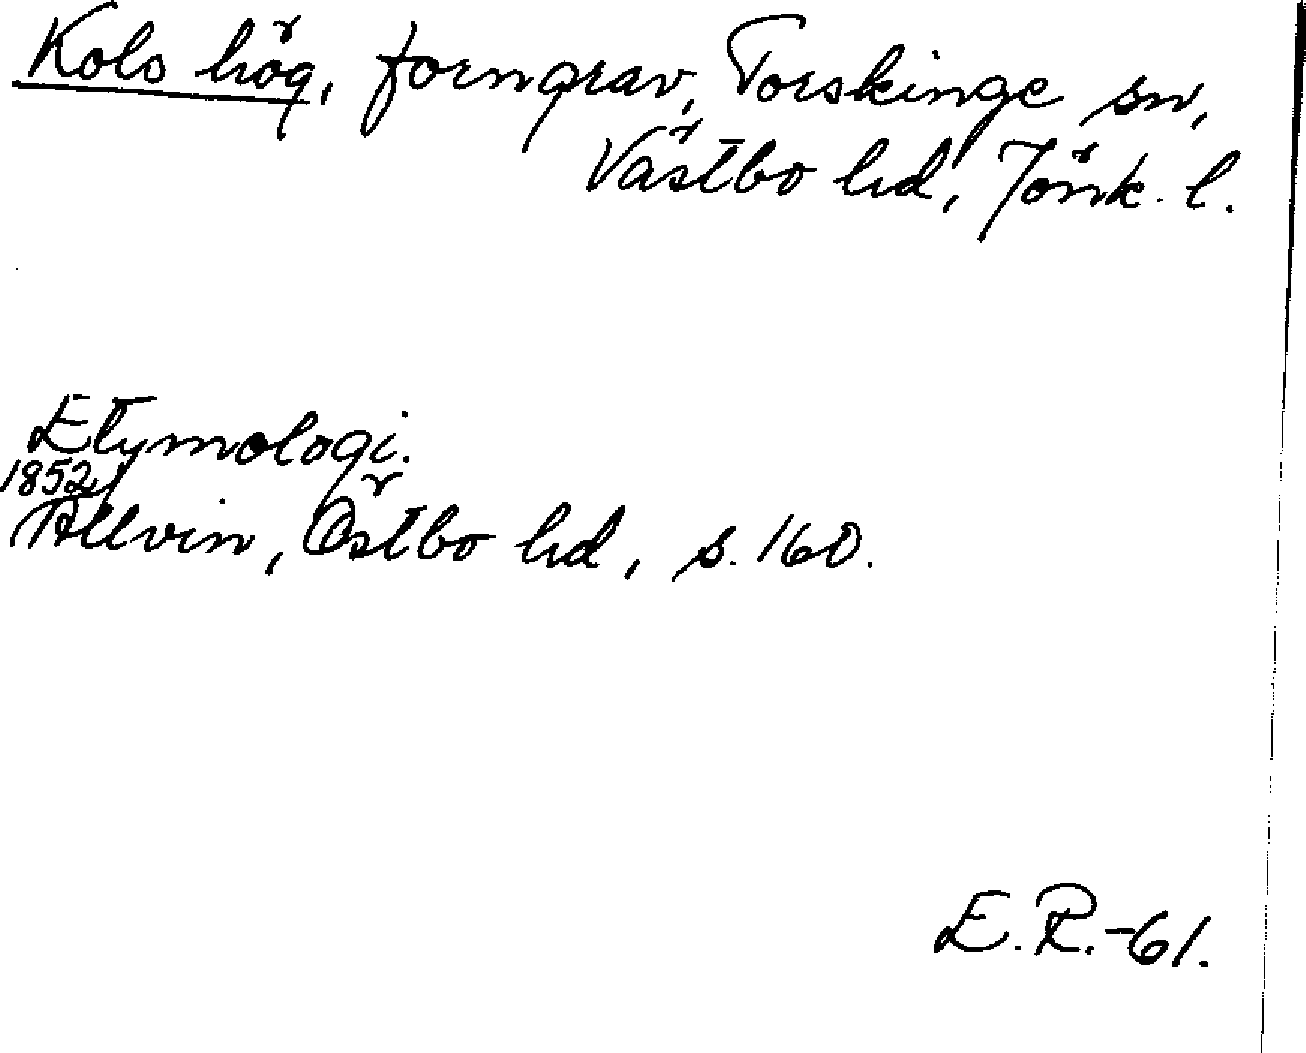 Kols hög, forngrav, Torskinge sn,
Västbo hd, Jönk. l.
Etymologi.
1852,
Allvin, Östbo hd, s. 160.
E. R. -61.